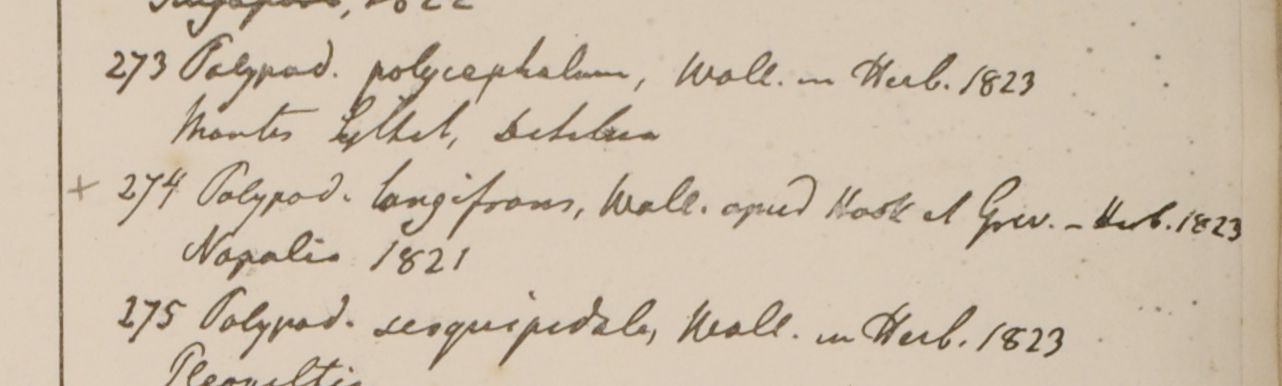 Singapore, 1822
273 Polypod. polycephalum, Wall. in Herb. 1823
Montes Sylhet,
+ 274 Polypod. longifrons, Wall. apud Hook et Grev. - Herb. 1823
Napalia 1821
275 Polypod. sesquipedale, Wall. in Herb. 1823
Pleopeltis